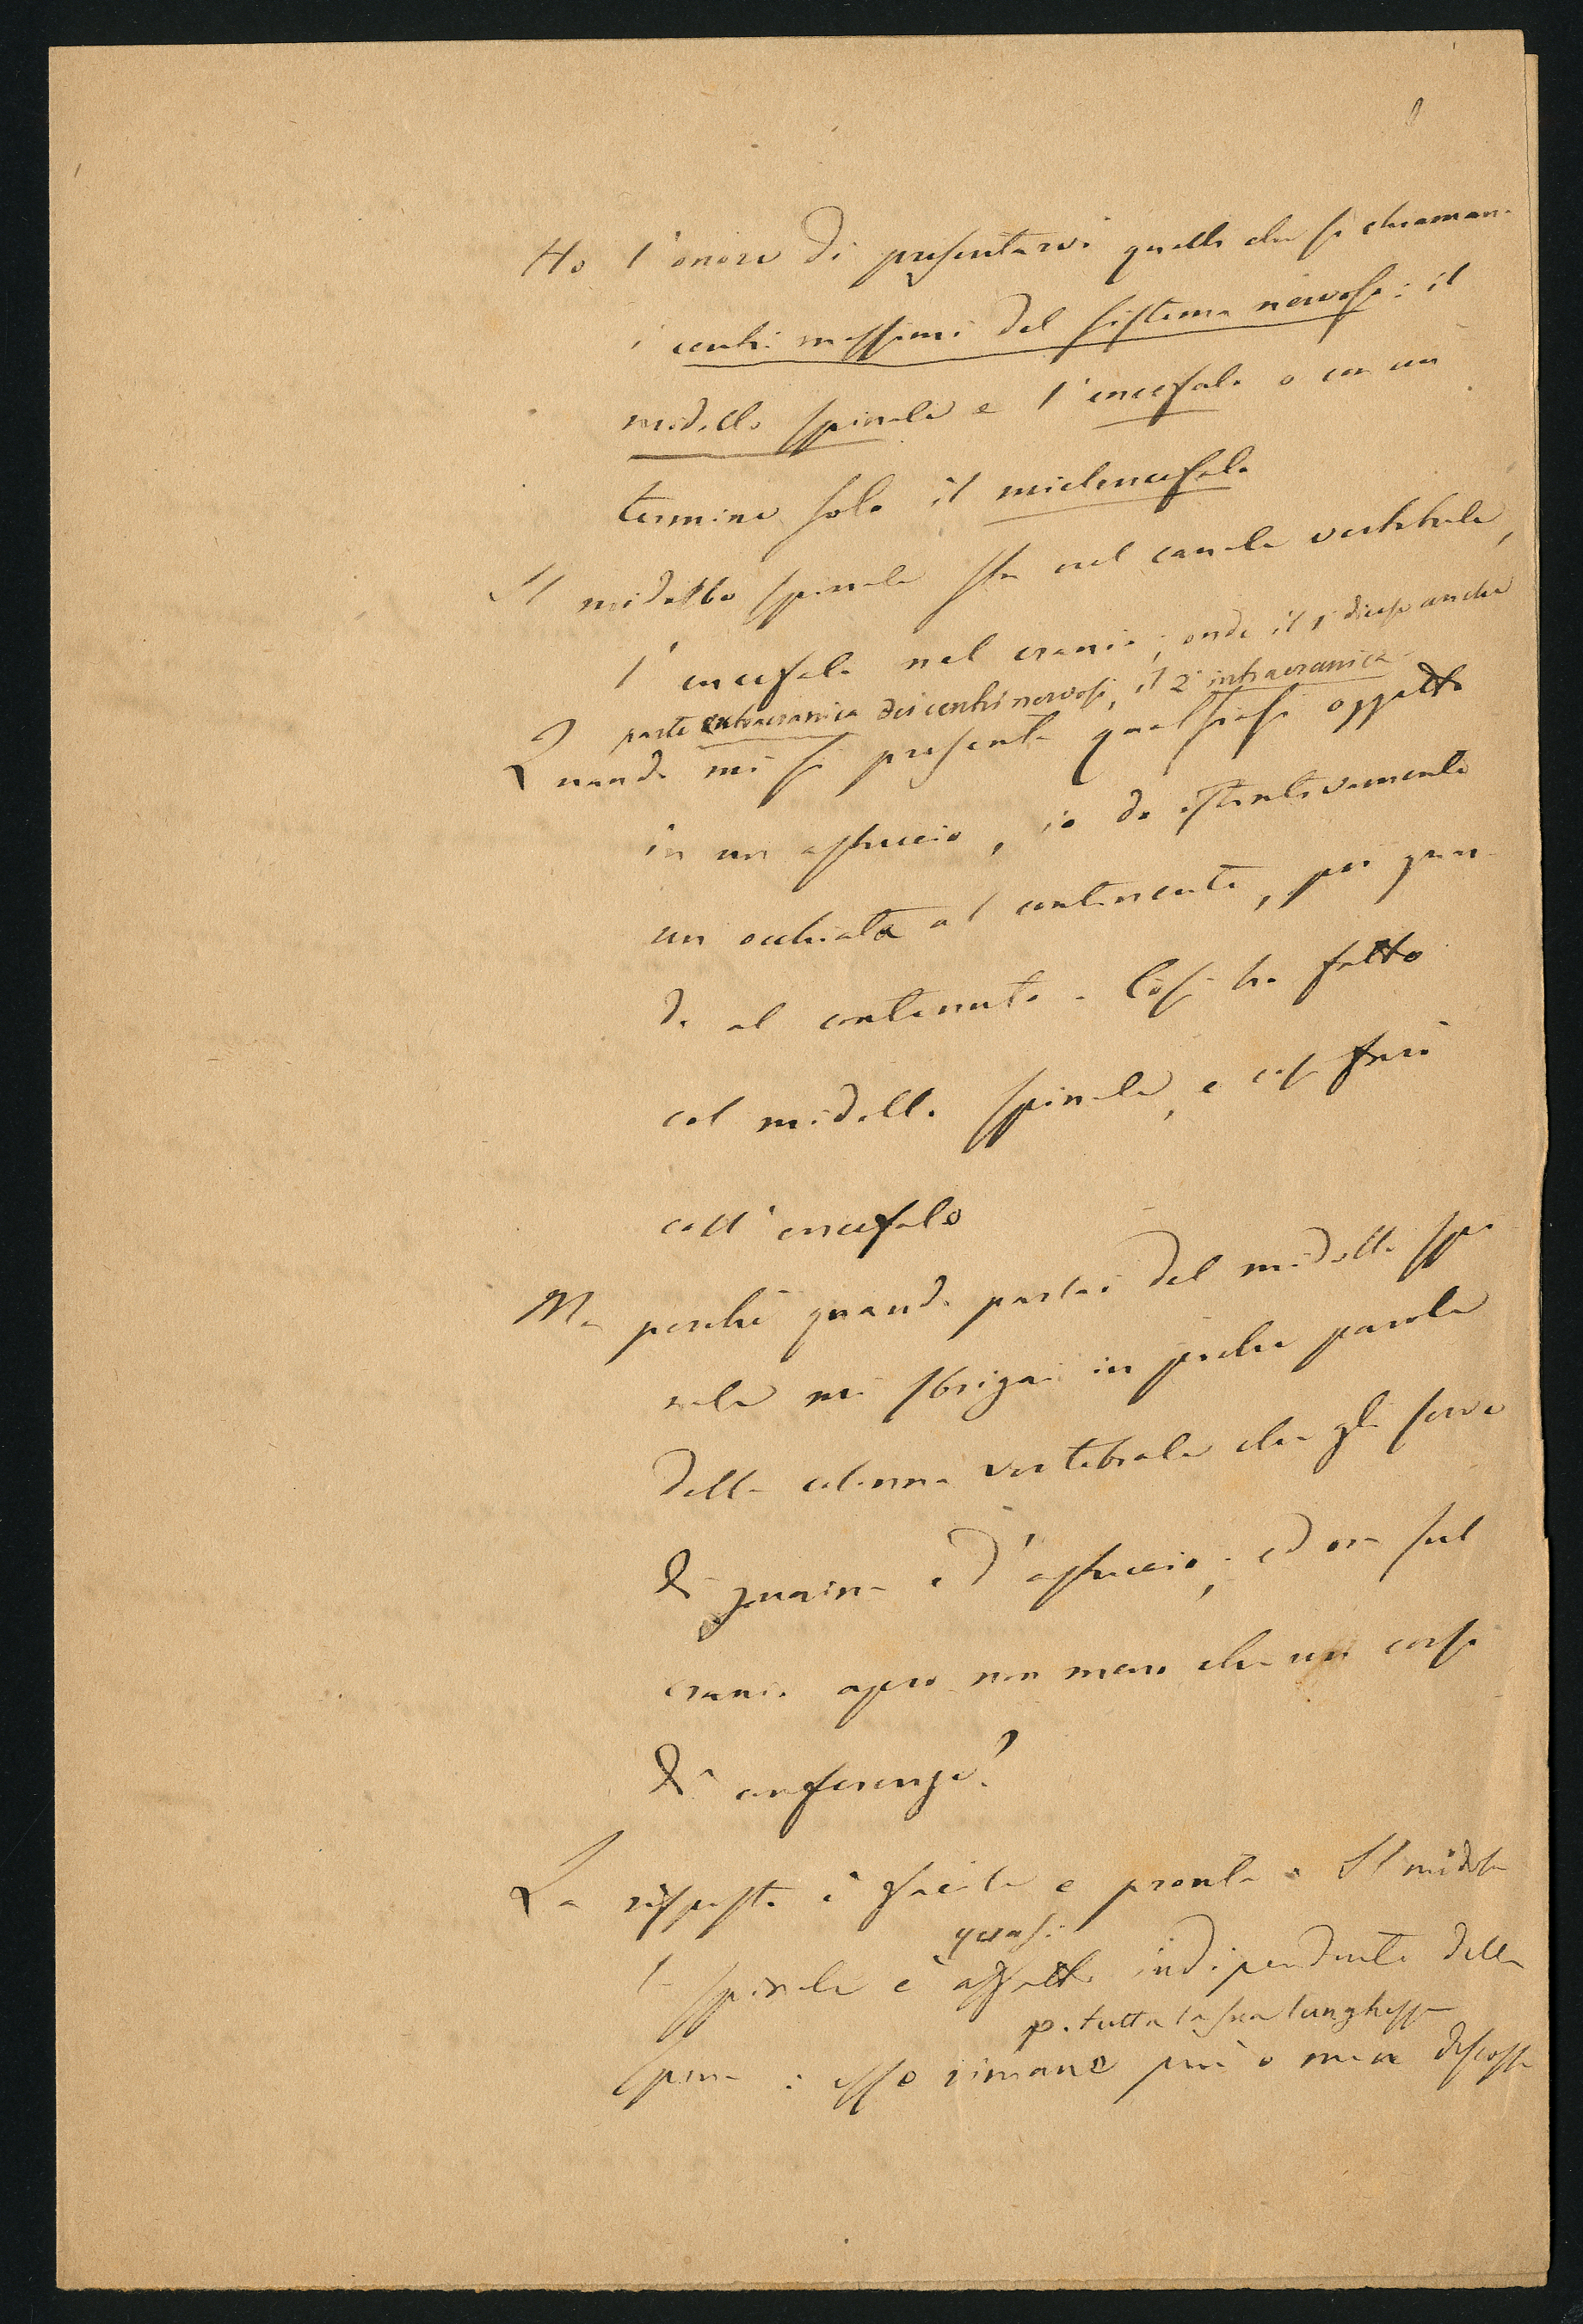 Ho l'onore di presentarvi quelli che si chiamano
i centri massimi del sistema nervoso: il
midollo spinale e l'encefalo o con un
termine solo il mielencefalo
Il midollo spinale sta nel canale vertebrale,
l'encefalo nel cranio; onde il 1° dicesi anche
parte extracranica dei centri nervosi, il 2° intracranica
Quando mi si presenta qualsiasi oggetto
in un astuccio, io do istintivamente
un occhiata al continente, poi guar-
do al contenuto. Così ho fatto
col midollo spinale, e così farò
coll'encefalo
Ma perchè quando parlai del midollo spi
nale mi sbrigai in poche parole
della colonna vertebrale che gli serve
di guaina e d'astuccio; ed ora sul
cranio apro non meno che un corso
di conferenze?
La risposta è facile e pronta. Il midol
quasi
lo spinale è affatto indipendente dalla
p. tutta la sua lunghezza
spina: esso rimane più o men discosto